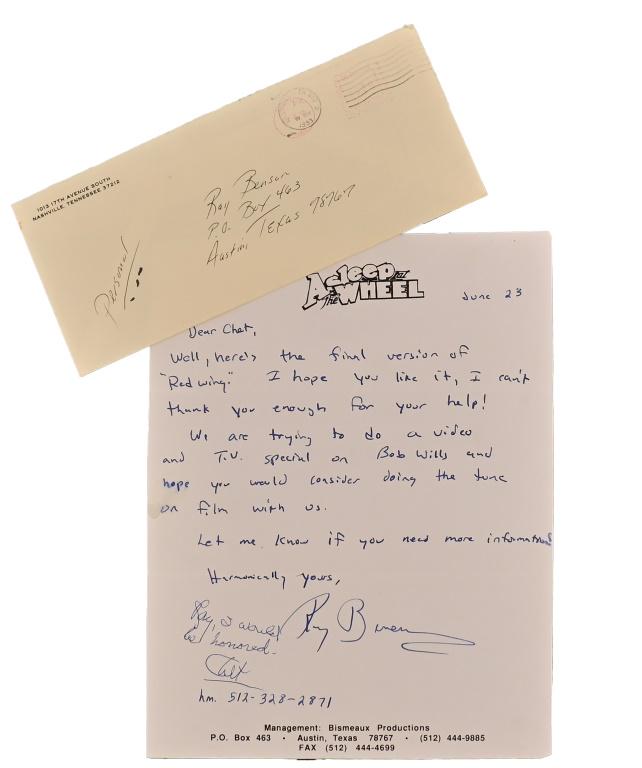 1013 17TH AVENUE SOUTH
NASHVILLE, TENNESSEE 37212
1993
Ray Benson
P.O. Box 463
Austin, Texas 78767
Personal
Asleep at the WHEEL
June 23
Dear Chet,
Well, here's the final version of
"Redwing." I hope you like it, I can't
thank you enough for your help!
We are trying to do a video
and T.V. special on Bob Wills and
hope you would consider doing the tune
on film with us.
Let me know if you need more information
Harmonically yours,
Ray Benson
Ray, I would
be honored.
Chet
hm. 512-328-2871
Management: Bismeaux Productions
P.O. Box 463 • Austin, Texas 78767 • (512) 444-9885
FAX (512) 444-4699